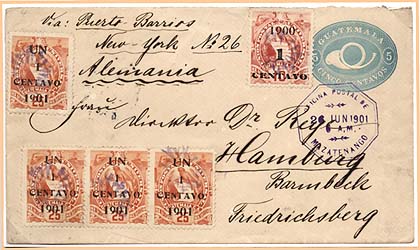 Via: Puerto Barrios
New-York No 26
Alemania
Frau
Direktor Dr. Reye
Hamburg
Barmbeck
Friedrichsberg
UN
1
CENTAVO
1901
1900
1
CENTAVO
GUATEMALA
5 5
CINCO CENTAVOS
OFICINA POSTAL DE
26 JUN 1901
6 A.M.
MAZATENANGO
UN UN UN
1 1 1
CENTAVO CENTAVO CENTAVO
1901 1901 1901